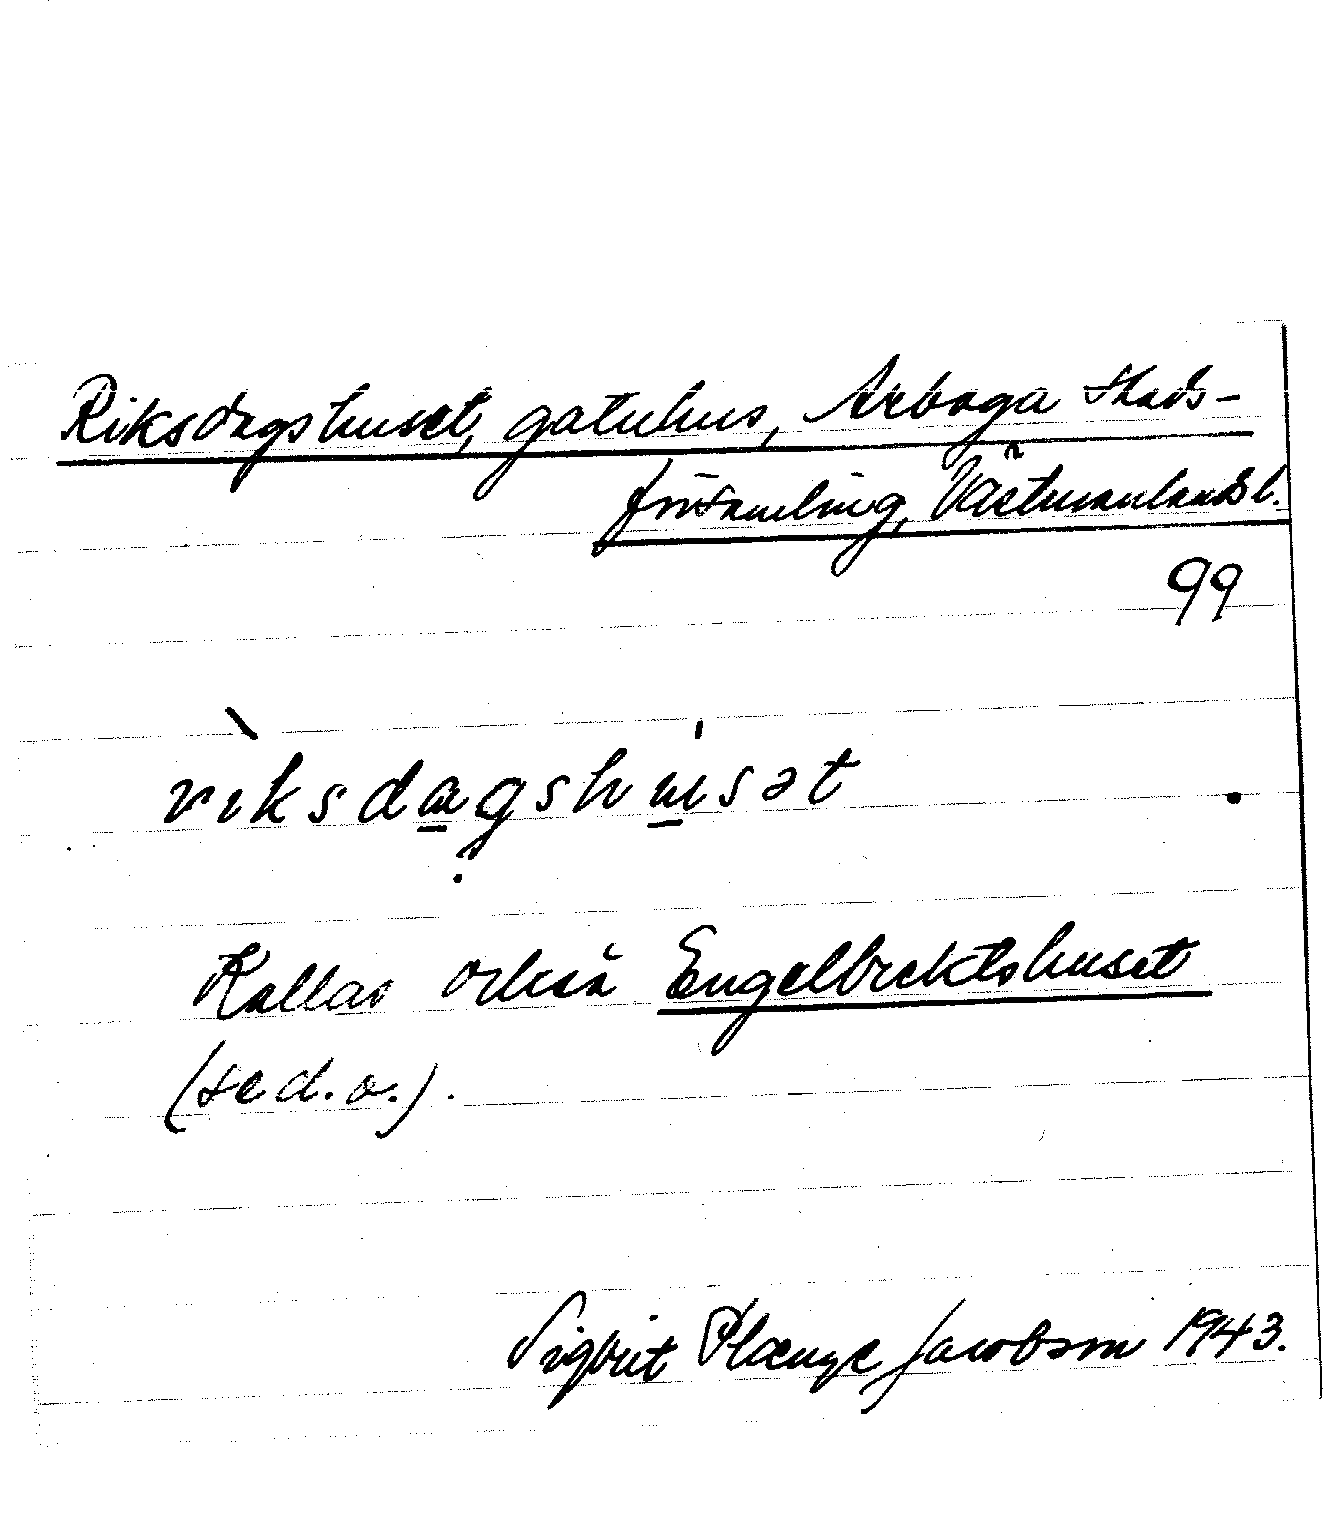 Riksdagshuset, gatuhus, Arboga stads-
församling, Västmanlands l.
99
rìksdagshu̍sət
Kallas också Engelbrektshuset
(se d. o.).
Sigbrit Plænge Jacobson 1943.